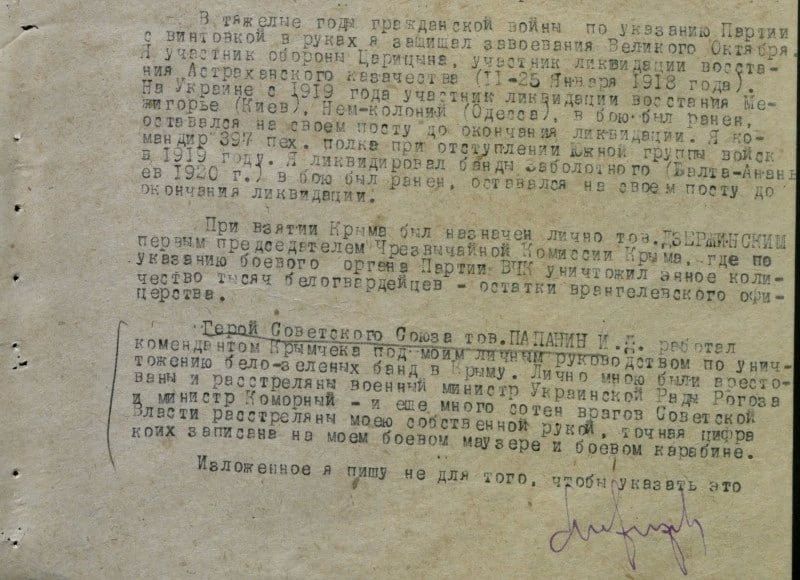 В тяжелые годы гражданской войны по указанию Партии
с винтовкой в руках я защищал завоевания Великого Октября.
Я участник обороны Царицына, участник ликвидации восста-
ния Астраханского казачества (11-25 Января 1918 года).
На Украине с 1919 года участник ликвидации восстания Ме-
жигорье (Киев), Нем-колоний (Одесса), в бою был ранен,
оставался на своем посту до окончания ликвидации. Я ко-
мандир 397 пех. полка при отступлении Южной группы войск
в 1919 году. Я ликвидировал банды Заболотного (Балта-Анань
ев 1920 г.) в бою был ранен, оставался на своем посту до
окончания ликвидации.
При взятии Крыма был назначен лично тов.ДЗЕРЖИНСКИМ
первым председателем Чрезвычайной Комиссии Крыма, где по
указанию боевого органа Партии ВЧК уничтожил энное коли-
чество тысяч белогвардейцев - остатки врангелевского офи-
церства.
Герой Советского Союза тов.ПАПАНИН И.Д. работал
комендантом Крымчека под моим личным руководством по унич-
тожению бело-зеленых банд в Крыму. Лично мною были аресто-
ваны и расстреляны военный министр Украинской Рады Рогоза
и министр Коморный - и еще много сотен врагов Советской
Власти расстреляны моею собственной рукой, точная цифра
коих записана на моем боевом маузере и боевом карабине.
Изложенное я пишу не для того, чтобы указать это